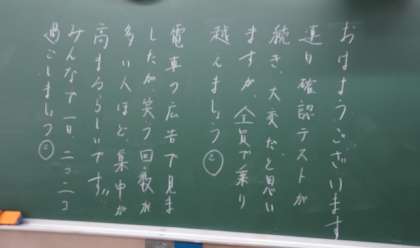 おはようございます
連日確認テストが
続き、大変だと思い
ますが、全員で乗り
越えましょう
電車の広告で見ま
したが、笑う回数が
多い人ほど集中が
高まるらしいです。
みんなで一日、ニコニコ
過ごしましょう